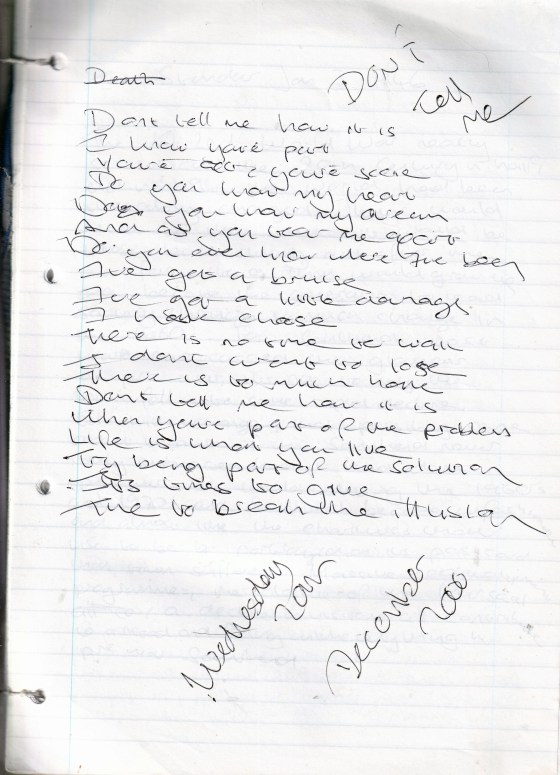 Death
DON'T
Tell
Me
Dont tell me how it is
I know youre part
You've act, you're scene
Do you know my heart
Do you know my dream
And as you tear me apart
Do you even know where I've been
I've got a bruise
I've got a little damage.
I have chose
There is no time to wait
I dont want to lose
There is to much hate
Dont tell me how it is
When youre part of the problem
Life is what you live
Try being part of the solution
Its times to give
Time to break the illusion
Wednesday
December
2000